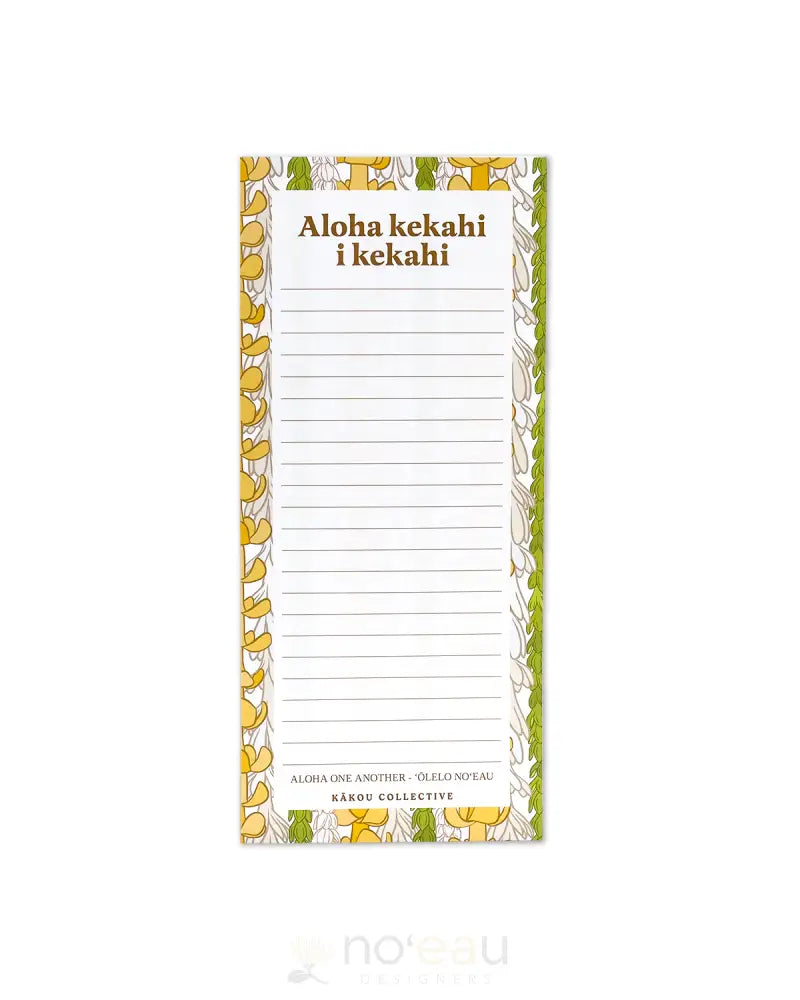 Aloha kekahi
i kekahi
ALOHA ONE ANOTHER - ʻŌLELO NOʻEAU
KĀKOU COLLECTIVE
noʻeau
DESIGNERS